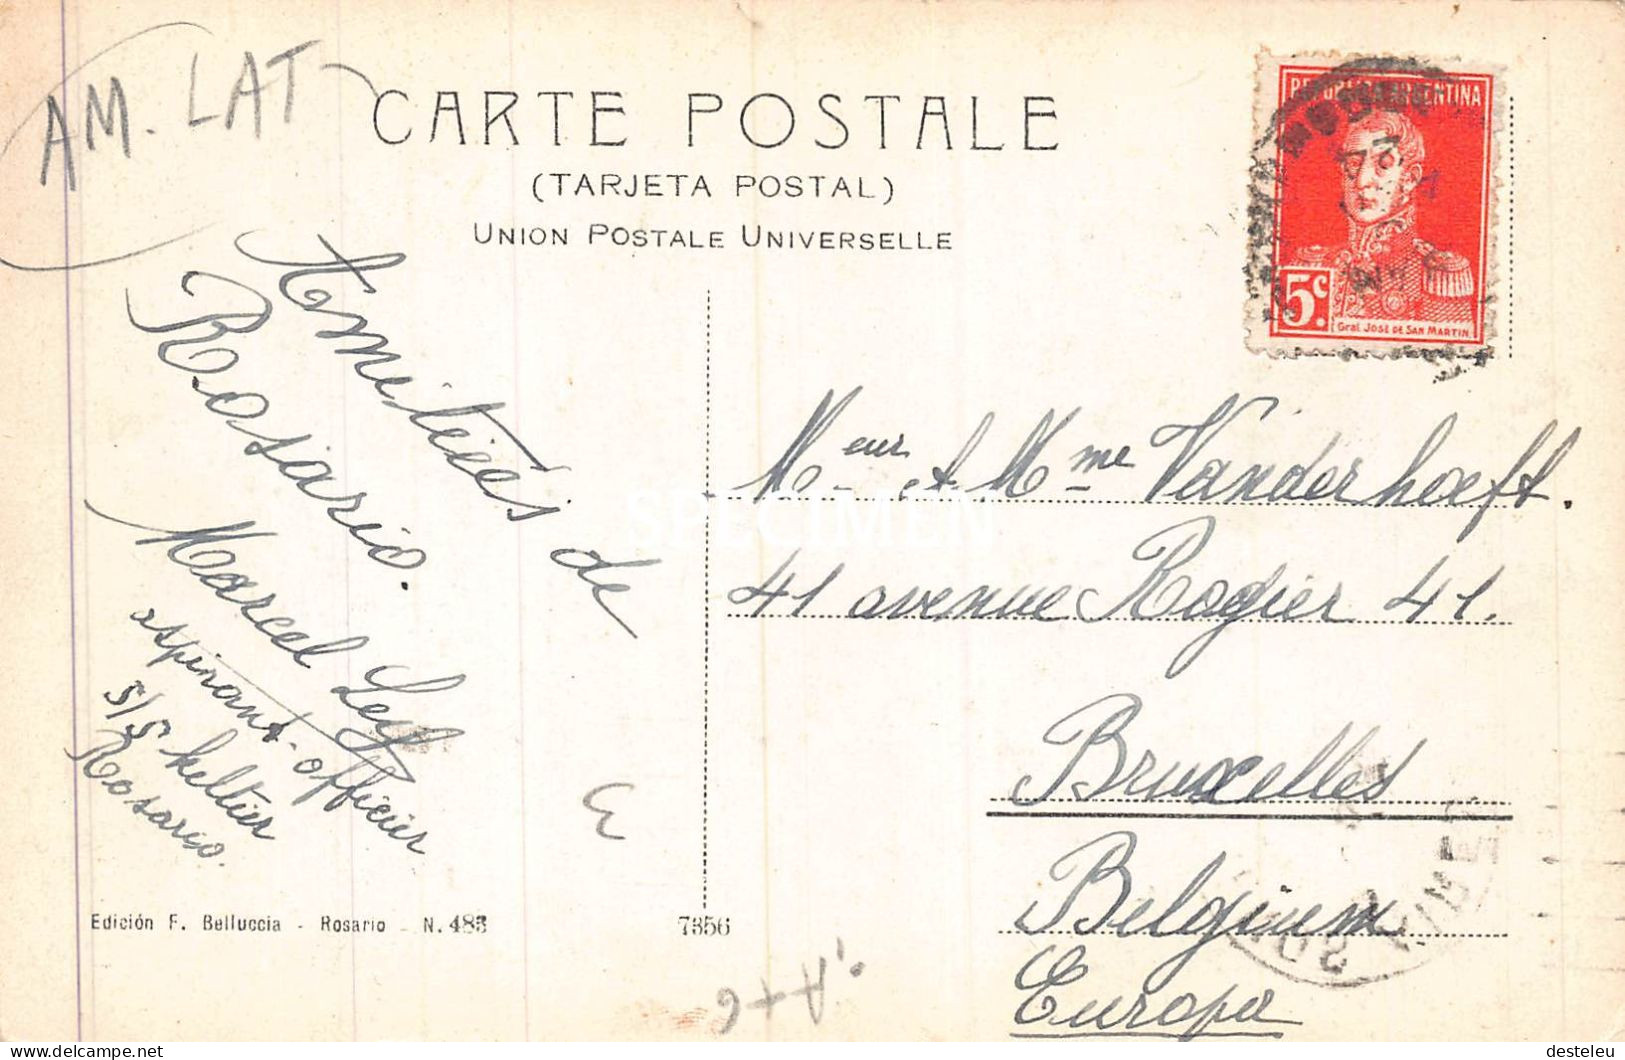 AM. LAT
CARTE POSTALE
(TARJETA POSTAL)
UNION POSTALE UNIVERSELLE
REPUBLICA ARGENTINA
5c.
Gral. José de San Martin
Amitiés de
Rosario.
Marcel Ley
aspirant-officier
S/S Keltier
Rosario.
Meur & Mme Vanderhoeft.
41 avenue Rogier 41.
Bruxelles
Belgium
Europa
SPECIMEN
Edición F. Belluccia - Rosario - N. 483
7356
A+6
delcampe.net
desteleu